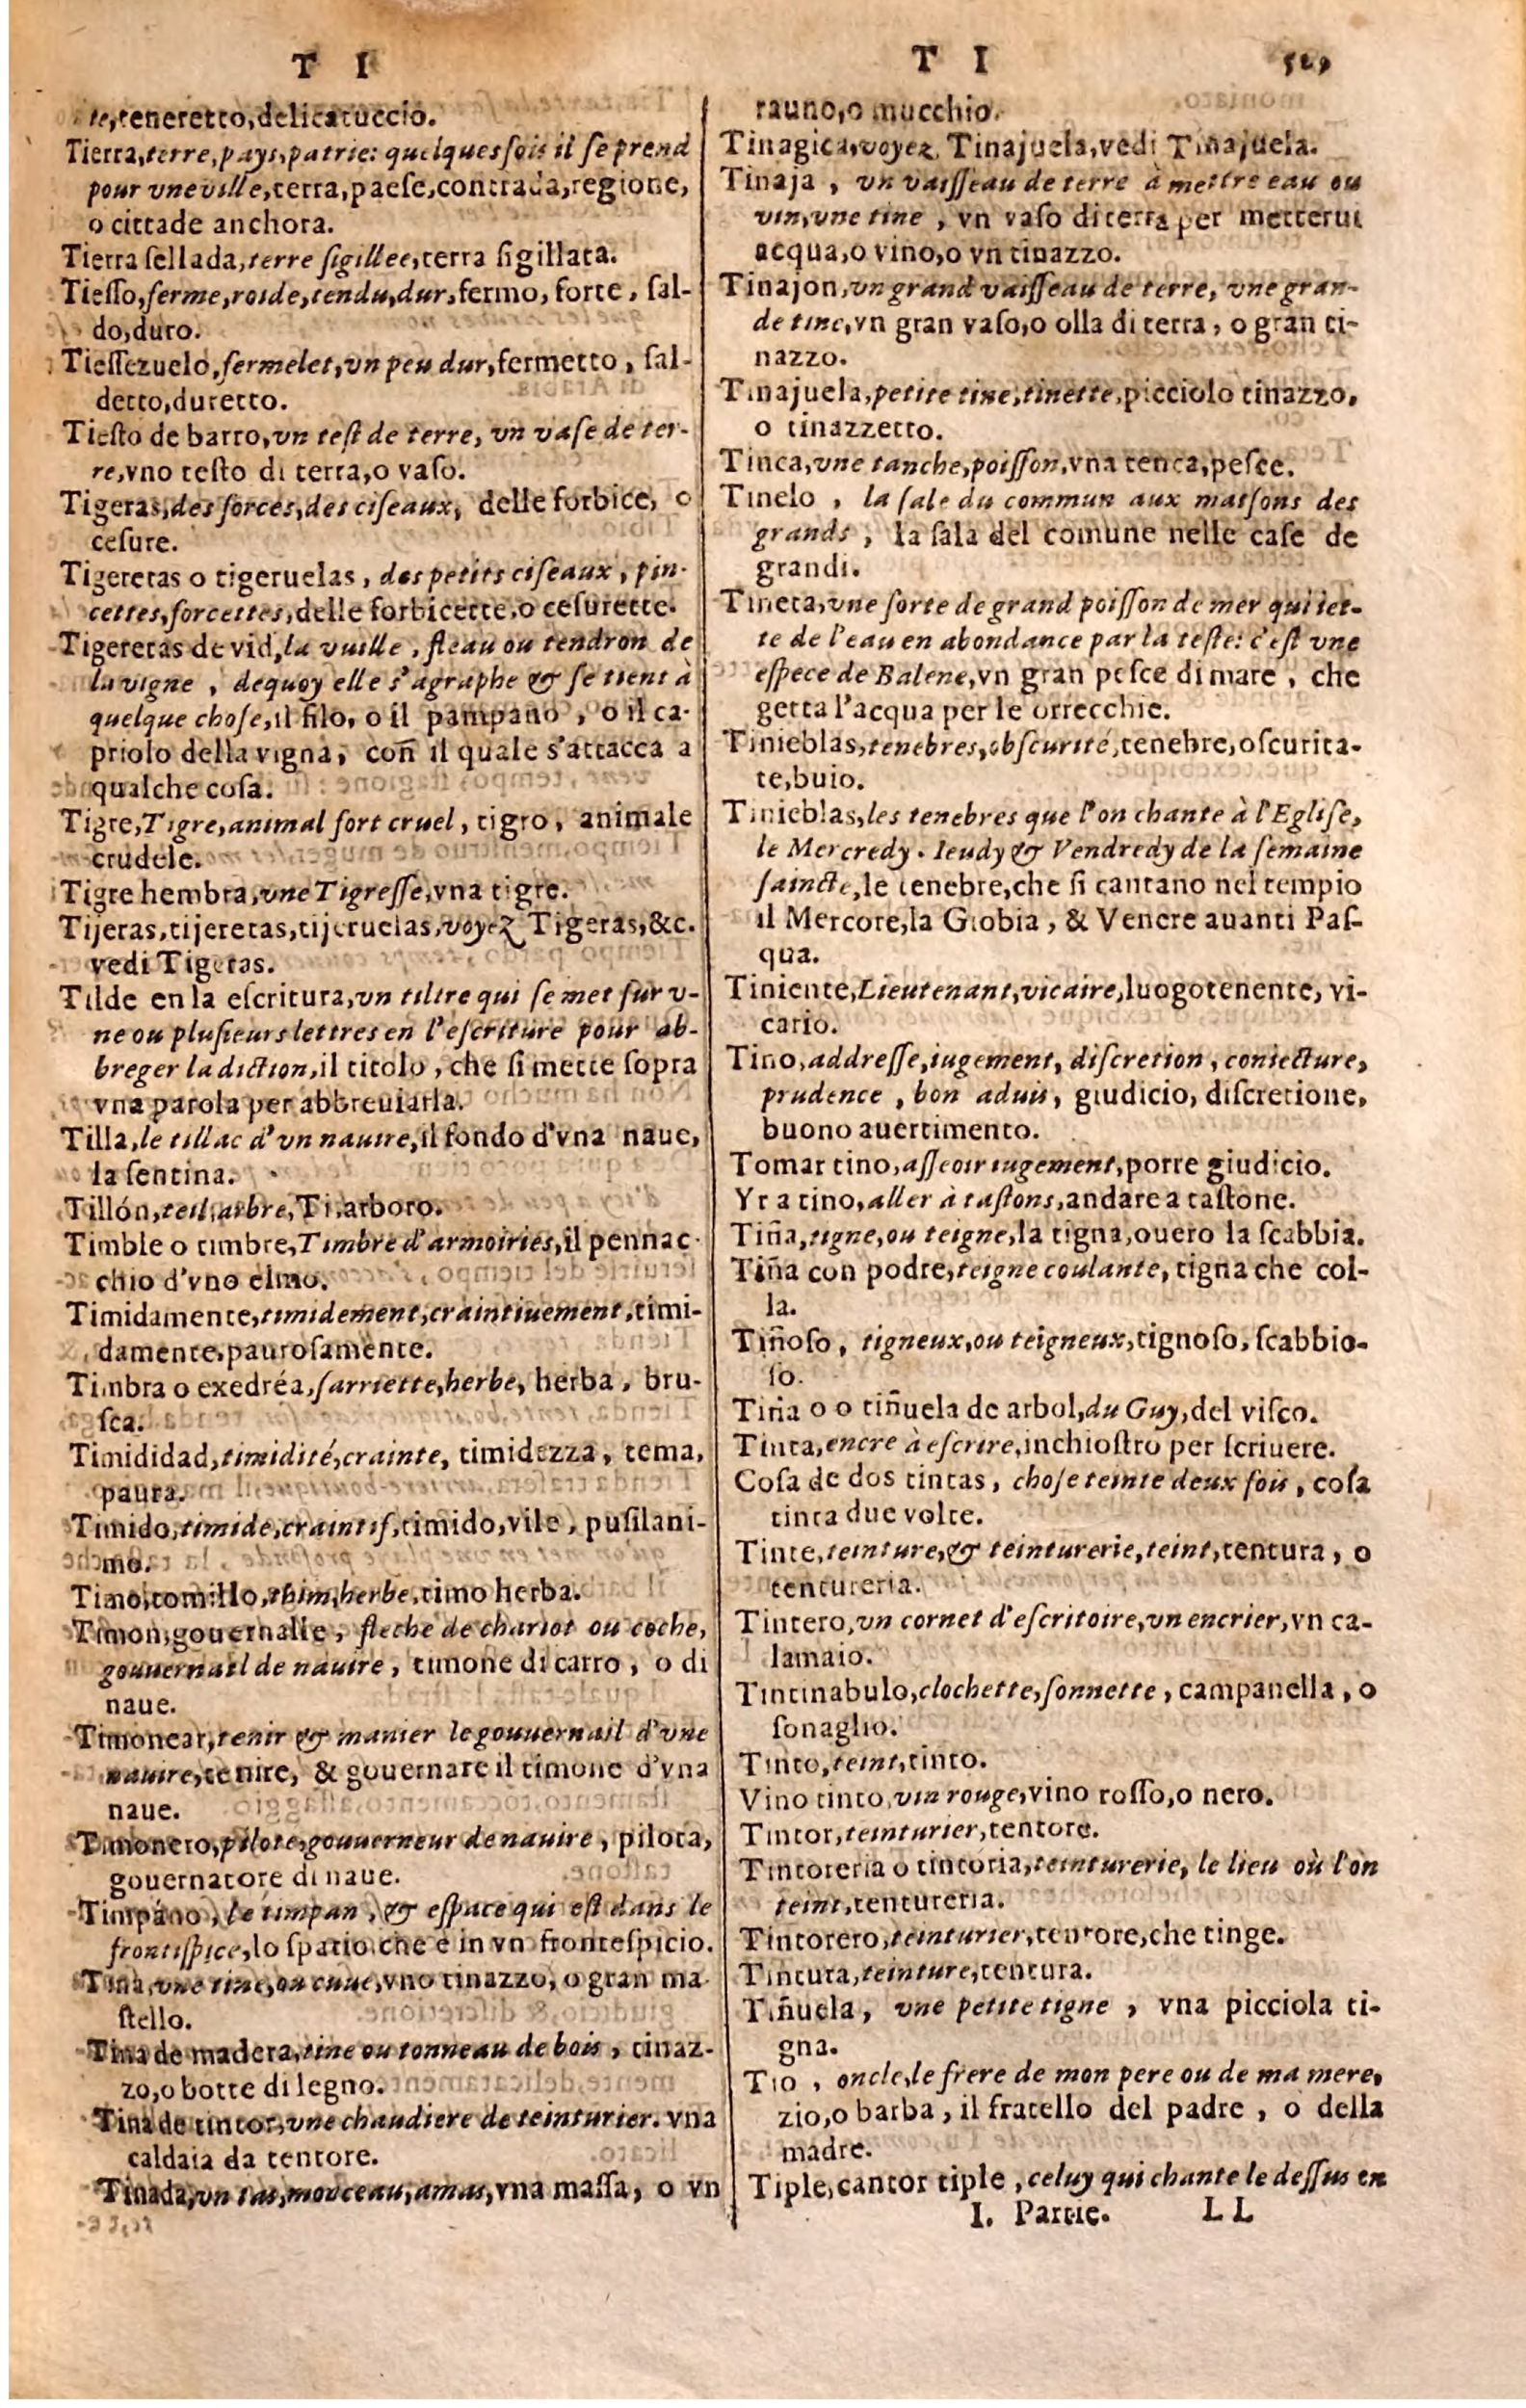 T I
te, teneretto, delicatuccio.
Tierra, terre, pays, patrie: quelquesfois il se prend
pour vne ville, terra, paese, contrada, regione,
o cittade anchora.
Tierra sellada, terre sigillee, terra sigillata.
Tiesso, ferme, roide, tendu, dur, fermo, forte, sal-
do, duro.
Tiessezuelo, fermelet, vn peu dur, fermetto, sal-
detto, duretto.
Tiesto de barro, vn test de terre, vn vase de ter-
re, vno testo di terra, o vaso.
Tigeras, des forces, des ciseaux, delle forbice, o
cesure.
Tigeretas o tigeruelas, des petits ciseaux, pin-
cettes, forcettes, delle forbicette, o cesurette.
Tigeretas de vid, la vuille, fleau ou tendron de
la vigne, dequoy elle s'agraphe & se tient à
quelque chose, il filo, o il pampano, o il ca-
priolo della vigna, con il quale s'attacca a
qualche cosa.
Tigre, Tigre, animal fort cruel, tigro, animale
crudele.
Tigre hembra, vne Tigresse, vna tigre.
Tijeras, tijeretas, tijeruelas, voyez Tigeras, &c.
vedi Tigeras.
Tilde en la escritura, vn tiltre qui se met sur v-
ne ou plusieurs lettres en l'escriture pour ab-
breger la diction, il titolo, che si mette sopra
vna parola per abbreuiarla.
Tilla, le tillac d'vn nauire, il fondo d'vna naue,
la sentina.
Tillón, teil, arbre, Ti, arboro.
Timble o timbre, Timbre d'armoiries, il pennac-
chio d'vno elmo.
Timidamente, timidement, craintiuement, timi-
damente, paurosamente.
Timbra o exedréa, sarriette, herbe, herba, bru-
sca.
Timididad, timidité, crainte, timidezza, tema,
paura.
Timido, timide, craintif, timido, vile, pusilani-
mo.
Timo, tomillo, thim, herbe, timo herba.
Timon, gouernalle, fleche de chariot ou coche,
gouuernail de nauire, timone di carro, o di
naue.
Timonear, tenir & manier le gouuernail d'vne
nauire, tenire, & gouernare il timone d'vna
naue.
Timonero, pilote, gouuerneur de nauire, pilota,
gouernatore di naue.
Timpáno, le timpan, & espace qui est dans le
frontispice, lo spatio che è in vn frontespicio.
Tina, vne tine, ou cuue, vno tinazzo, o gran ma-
stello.
Tina de madera, tine ou tonneau de bois, tinaz-
zo, o botte di legno.
Tina de tintor, vne chaudiere de teinturier. vna
caldaia da tentore.
Tinada, vn tas, monceau, amas, vna massa, o vn
T I 529
rauno, o mucchio.
Tinagica, voyez Tinajuela, vedi Tinajuela.
Tinaja, vn vaisseau de terre à mettre eau ou
vin, vne tine, vn vaso di terra per metterui
acqua, o vino, o vn tinazzo.
Tinajon, vn grand vaisseau de terre, vne gran-
de tine, vn gran vaso, o olla di terra, o gran ti-
nazzo.
Tinajuela, petite tine, tinette, picciolo tinazzo,
o tinazzetto.
Tinca, vne tanche, poisson, vna tenca, pesce.
Tinelo, la sale du commun aux maisons des
grands, la sala del comune nelle case de
grandi.
Tineta, vne sorte de grand poisson de mer qui iet-
te de l'eau en abondance par la teste: c'est vne
espece de Balene, vn gran pesce di mare, che
getta l'acqua per le orrecchie.
Tinieblas, tenebres, obscurité, tenebre, oscurita-
te, buio.
Tinieblas, les tenebres que l'on chante à l'Eglise,
le Mercredy. Ieudy & Vendredy de la semaine
saincte, le tenebre, che si cantano nel tempio
il Mercore, la Giobia, & Venere auanti Pas-
qua.
Tiniente, Lieutenant, vicaire, luogotenente, vi-
cario.
Tino, addresse, iugement, discretion, coniecture,
prudence, bon aduis, giudicio, discretione,
buono auertimento.
Tomar tino, asseoir iugement, porre giudicio.
Yr a tino, aller à tastons, andare a tastone.
Tiña, tigne, ou teigne, la tigna, ouero la scabbia.
Tiña con podre, teigne coulante, tigna che col-
la.
Tiñoso, tigneux, ou teigneux, tignoso, scabbio-
so.
Tiña o o tiñuela de arbol, du Guy, del visco.
Tinta, encre à escrire, inchiostro per scriuere.
Cosa de dos tintas, chose teinte deux fois, cosa
tinta due volte.
Tinte, teinture, & teinturerie, teint, tentura, o
tentureria.
Tintero, vn cornet d'escritoire, vn encrier, vn ca-
lamaio.
Tintinabulo, clochette, sonnette, campanella, o
sonaglio.
Tinto, teint, tinto.
Vino tinto, vin rouge, vino rosso, o nero.
Tintor, teinturier, tentore.
Tintoreria o tintoria, teinturerie, le lieu où l'on
teint, tentureria.
Tintorero, teinturier, tentore, che tinge.
Tintura, teinture, tentura.
Tiñuela, vne petite tigne, vna picciola ti-
gna.
Tio, oncle, le frere de mon pere ou de ma mere,
zio, o barba, il fratello del padre, o della
madre.
Tiple, cantor tiple, celuy qui chante le dessus en
I. Partie. LL